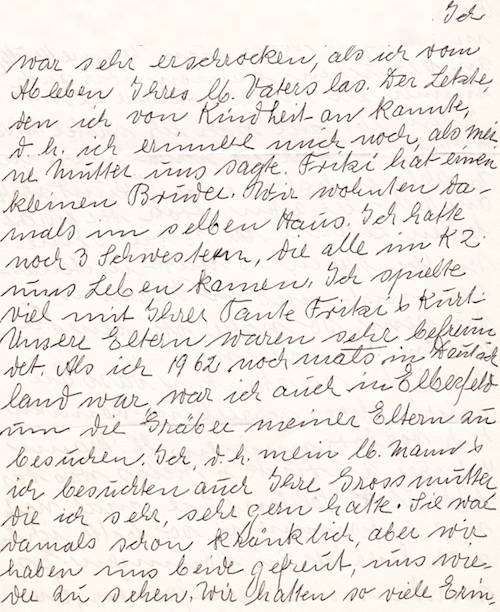 Ich
war sehr erschrocken, als ich vom
Ableben Ihres lb. Vaters las. Der Letzte,
den ich von Kindheit an kannte,
d.h. ich erinnere mich noch, als mei
ne Mutter uns sagte. Fritzi hat einen
kleinen Bruder. Wir wohnten da-
mals im selben Haus. Ich hatte
noch 3 Schwestern, die alle im KZ.
ums Leben kamen. Ich spielte
viel mit Ihrer Tante Fritzi & Kurt.
Unsere Eltern waren sehr befreun
det. Als ich 1962 nochmals in Deutsch
land war, war ich auch in Elberfeld
um die Gräber meiner Eltern zu
besuchen. Ich, d.h. mein lb. Mann &
ich besuchten auch Ihre Grossmutter
die ich sehr, sehr gern hatte. Sie war
damals schon kränklich, aber wir
haben uns beide gefreut, uns wie-
der zu sehen. Wir hatten so viele Erin